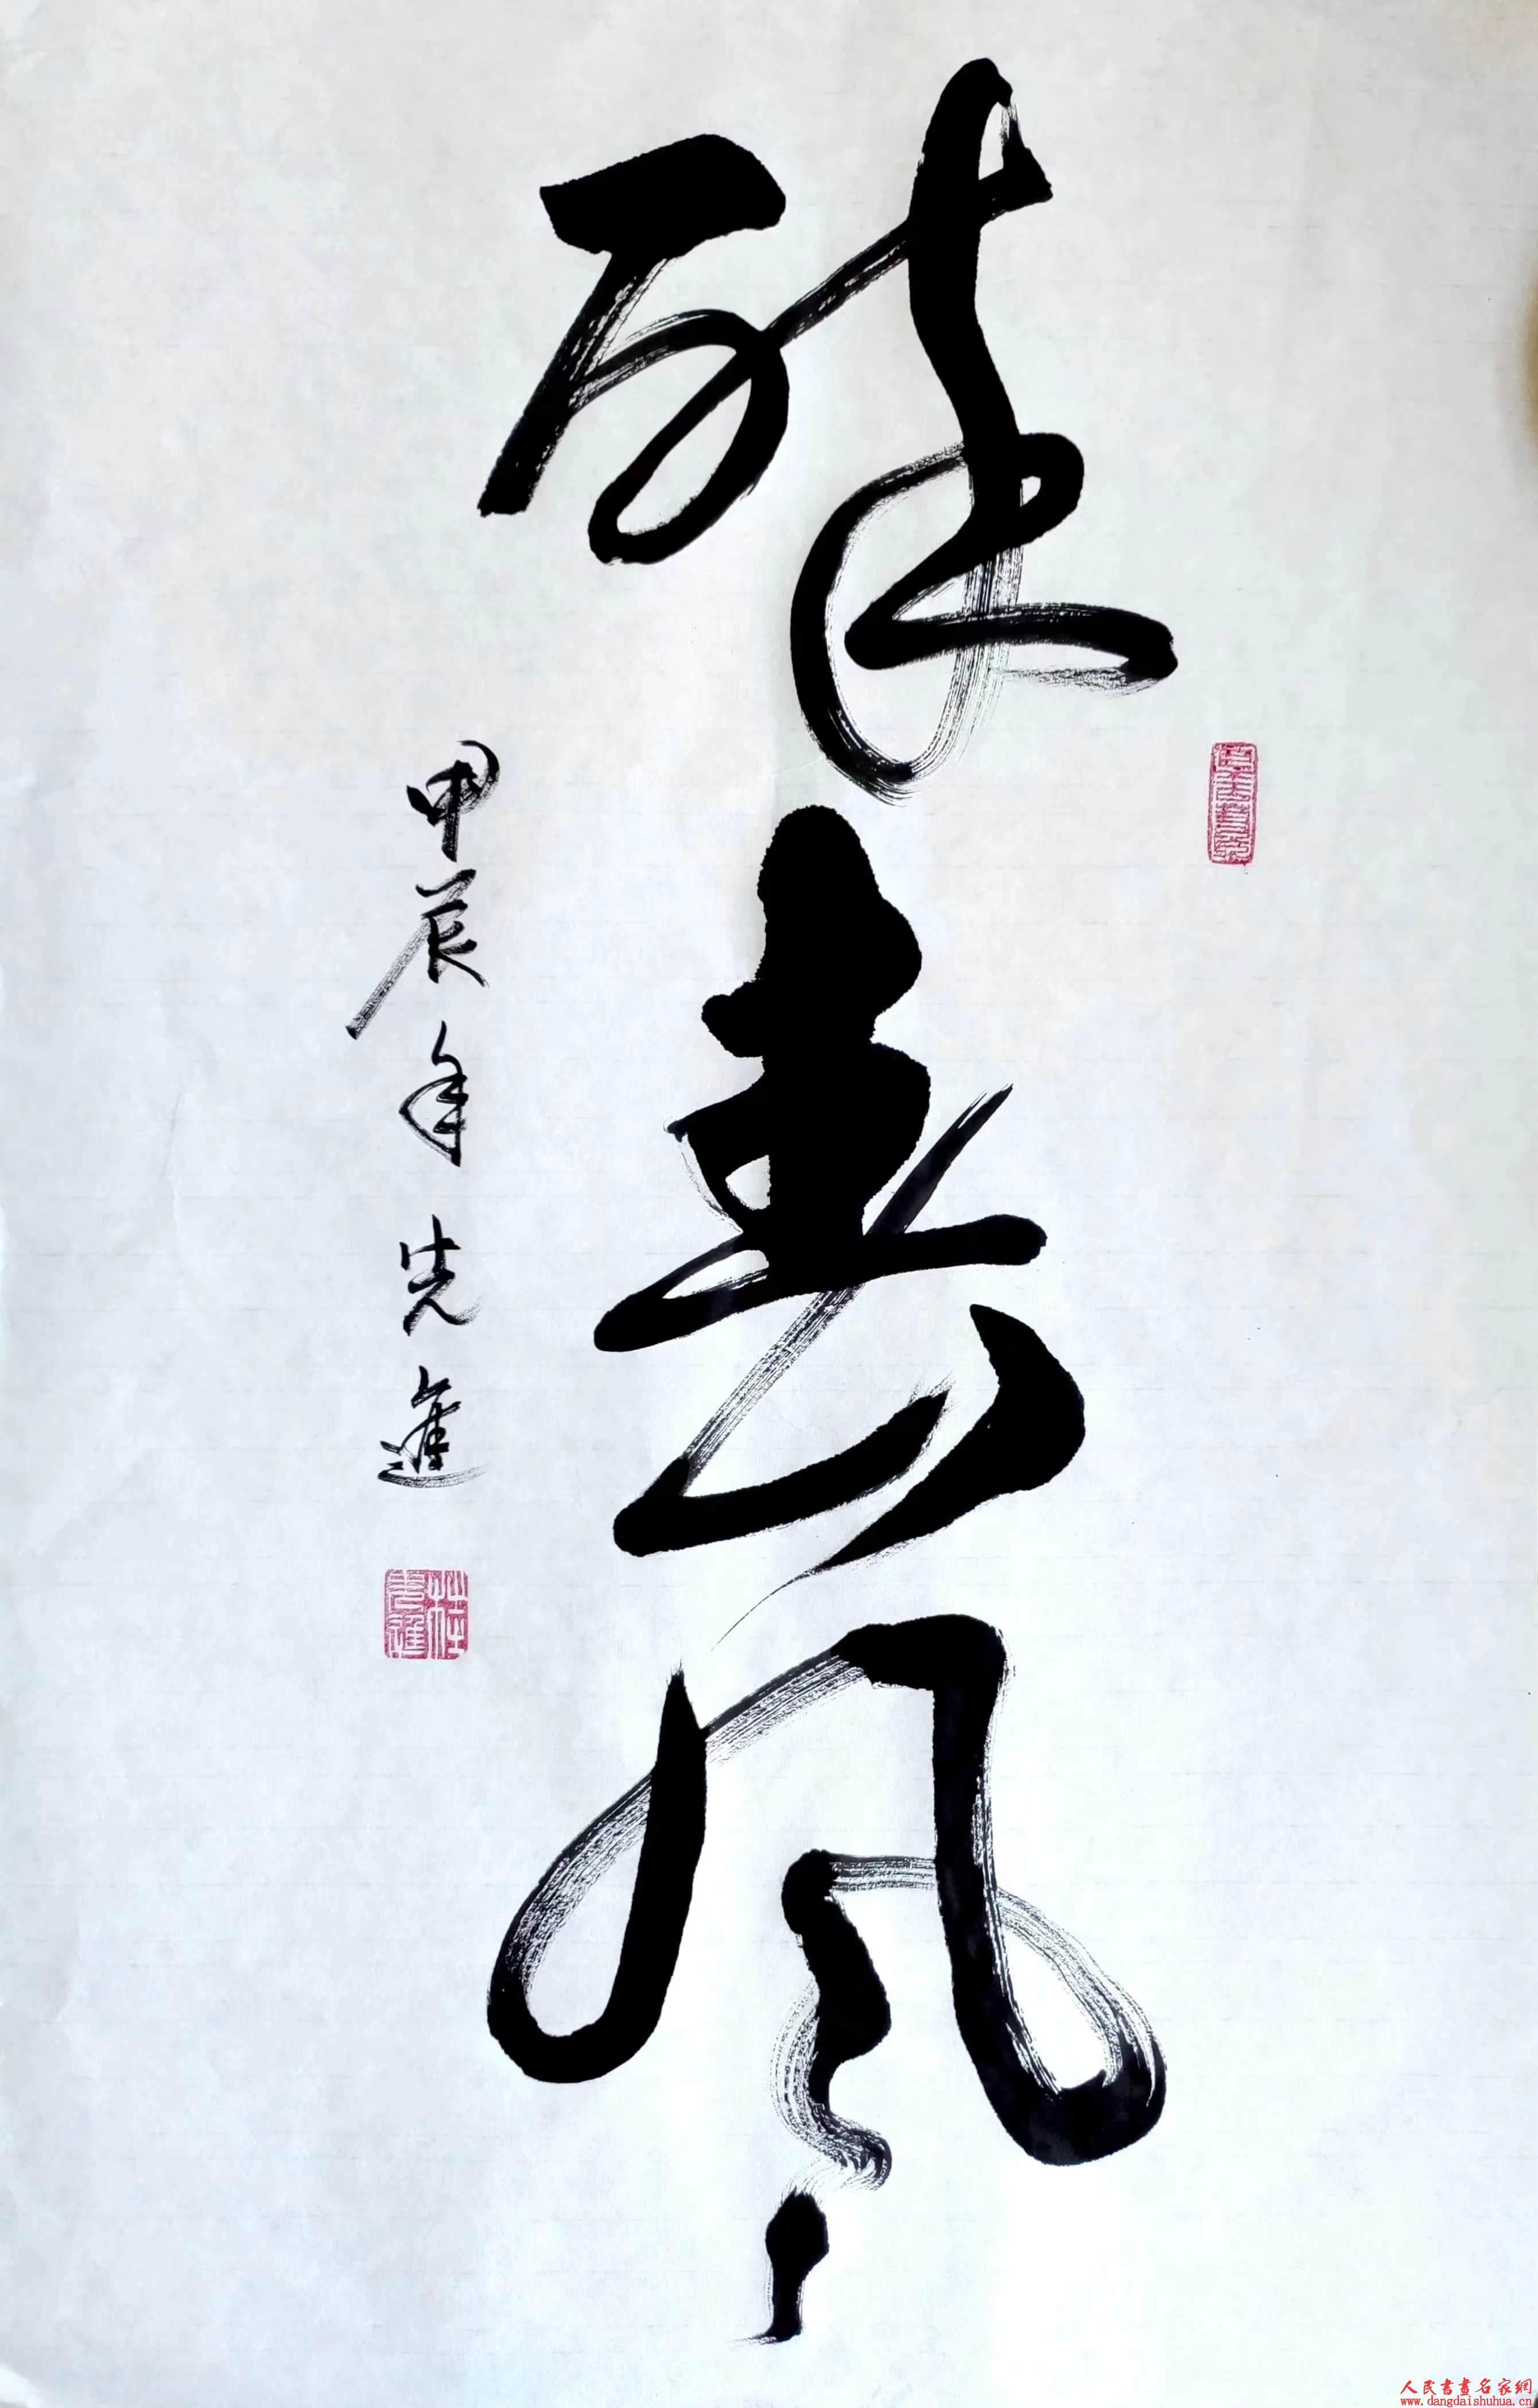 醉春風
甲辰年 先進
人民書畫名家網
www.dangdaishuhua.cn